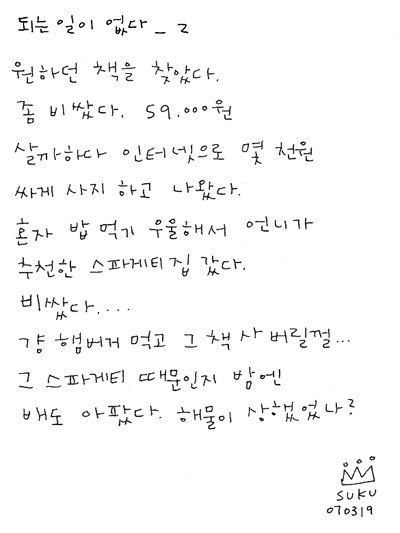 되는 일이 없다 _ 2
원하던 책을 찾았다.
좀 비쌌다. 59.000원
살까하다 인터넷으로 몇 천원
싸게 사지 하고 나왔다.
혼자 밥 먹기 우울해서 언니가
추천한 스파게티집 갔다.
비쌌다....
걍 햄버거 먹고 그 책 사 버릴껄...
그 스파게티 때문인지 밤엔
배도 아팠다. 해물이 상했었나?
SUKU
070319